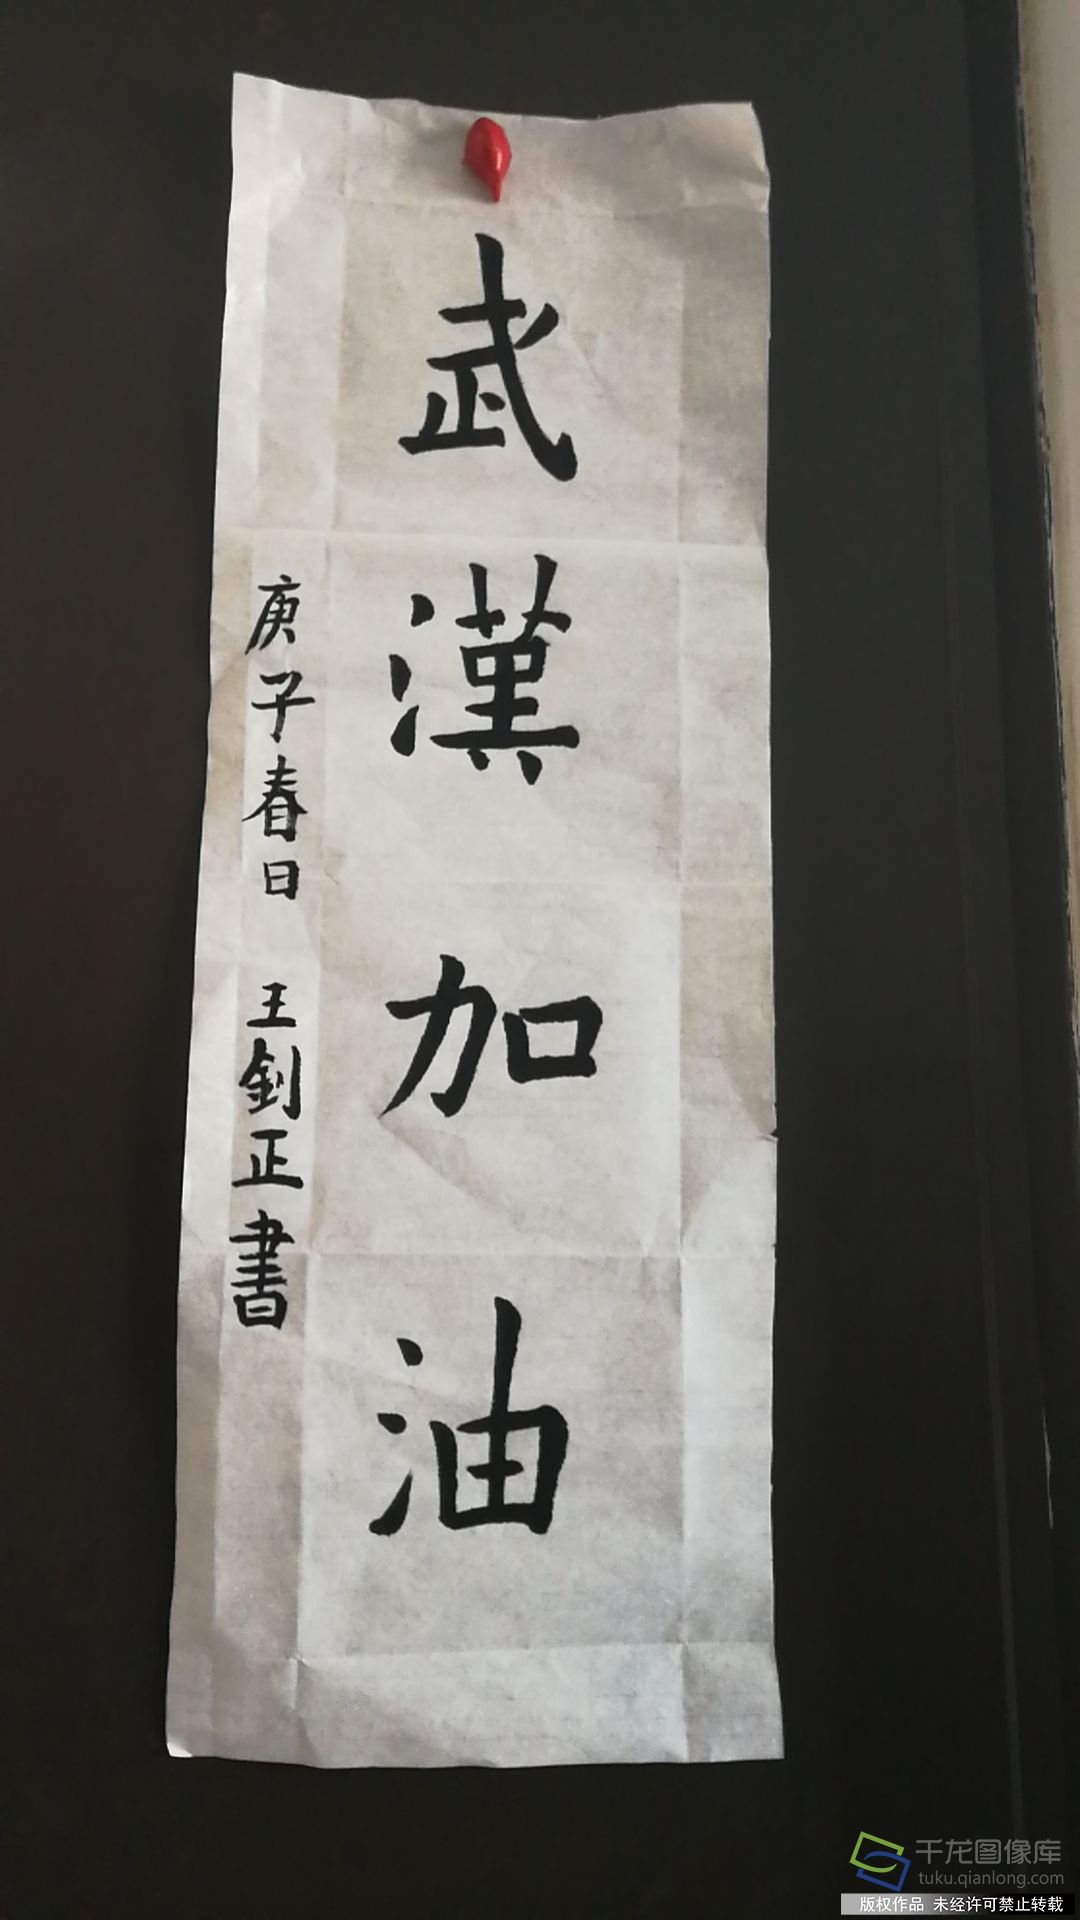 武漢加油
庚子春日 王釗正書
千龙图像库
tuku.qianlong.com
版权作品 未经许可禁止转载